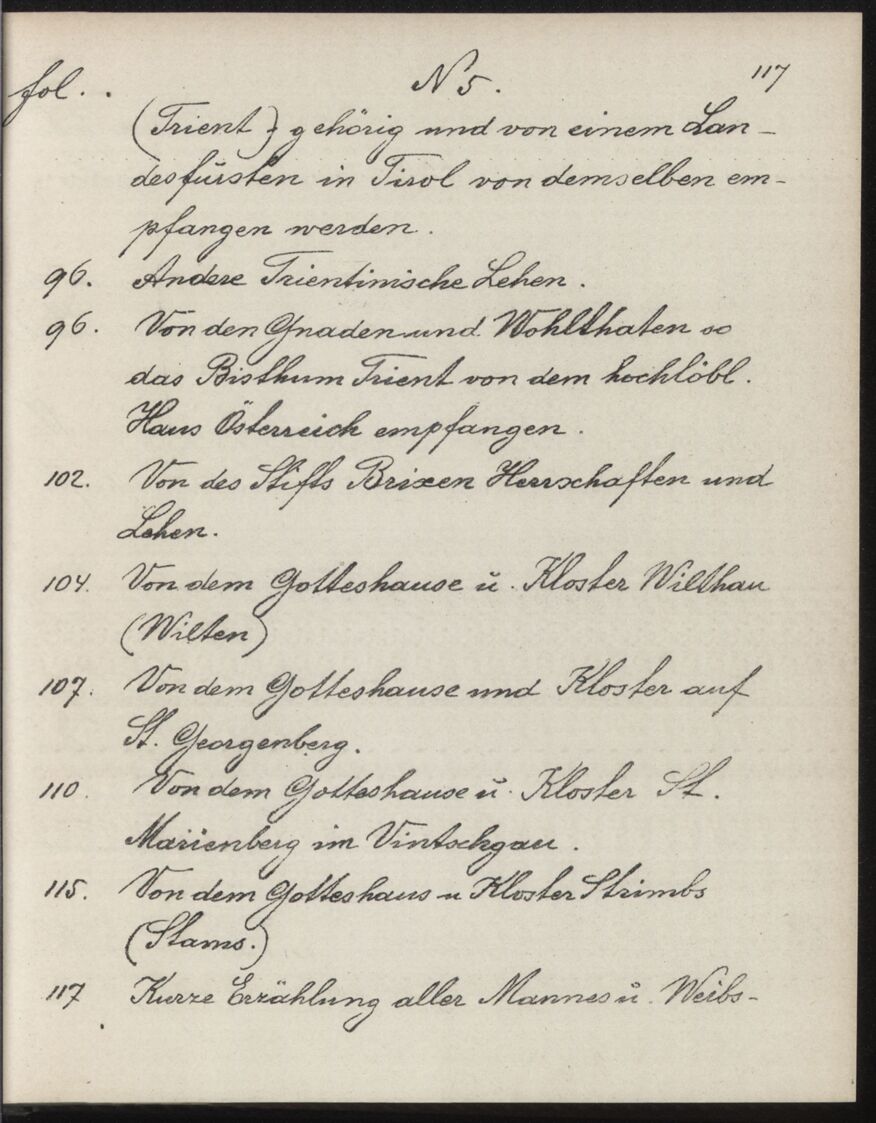 fol. . N 5. 117
(Trient) gehörig und von einem Lan-
desfürsten in Tirol von demselben em-
pfangen werden.
96. Andere Trientinische Lehen.
96. Von den Gnaden und Wohlthaten so
das Bisthum Trient von dem hochlöbl.
Haus Österreich empfangen.
102. Von des Stifts Brixen Herrschaften und
Lehen.
104. Von dem Gotteshause u. Kloster Wilthau
(Wilten)
107. Von dem Gotteshause und Kloster auf
St. Georgenberg.
110. Von dem Gotteshause u. Kloster St.
Marienberg im Vintschgau.
115. Von dem Gotteshaus u Kloster Strimbs
(Stams.)
117 Kurze Erzählung aller Mannes u. Weibs-